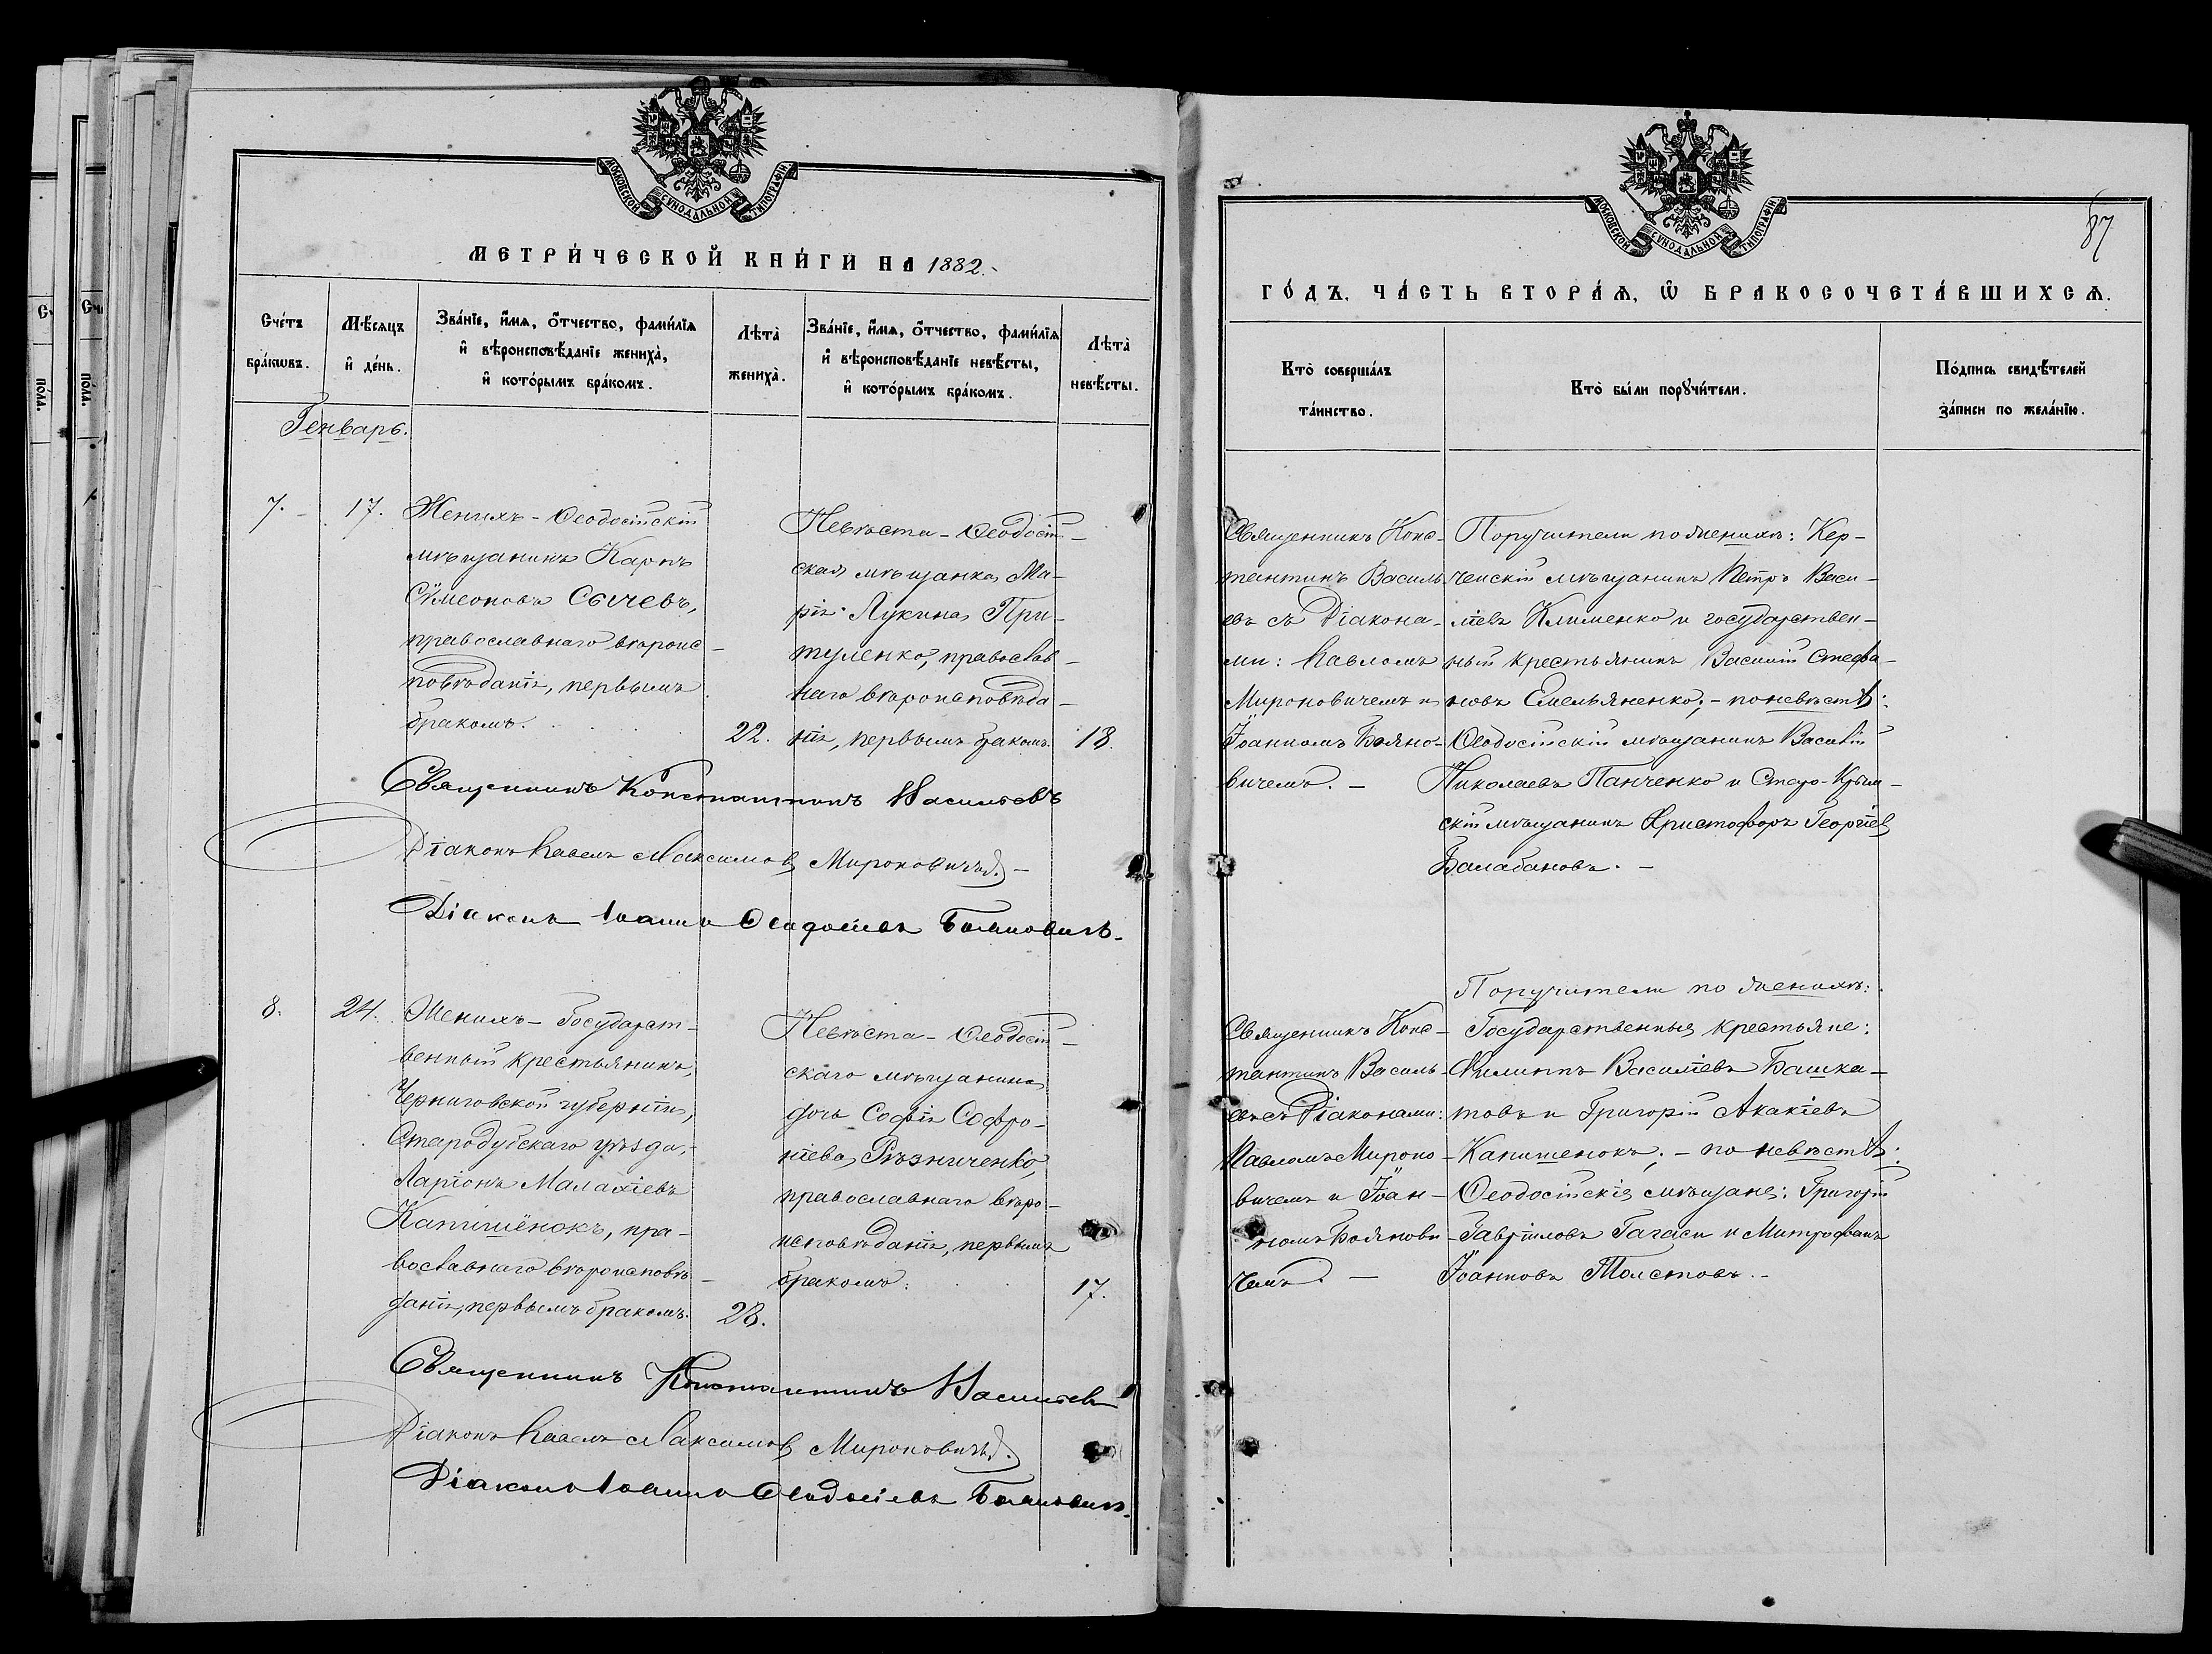 МОСКОВСКОЙ СѴНОДАЛЬНОЙ ТИПОГРАФІИ
МЕТРИ́ЧЕСКОЙ КНИ́ГИ НА 1882.
Сче́тъ бра́кѡвъ.
Мѣ́сяцъ и҆ де́нь.
Зва́нїе, и҆́мѧ, ѻ҆́тчество, фами́лїѧ
и҆ вѣроисповѣ́данїе жениха̀,
и҆ кото́рымъ бра́комъ.
Лѣта̀ жениха̀.
Зва́нїе, и҆́мѧ, ѻ҆́тчество, фами́лїѧ
и҆ вѣроисповѣ́данїе невѣ́сты,
и҆ кото́рымъ бра́комъ.
Лѣта̀ невѣ́сты.
Генварь.
7. 17.
Женихъ - Ѳеодосійскій
мѣщанинъ Карпъ
Сѵмеоновъ Сычевъ,
православнаго вѣроис-
повѣданія, первымъ
бракомъ. 22.
Невѣста - Ѳеодосій-
ская мѣщанка Ма-
рія Лукина При-
туленко, православ-
наго вѣроисповѣда-
нія, первымъ бракомъ. 18.
Священникъ Константинъ Васильевъ
Діаконъ Павелъ Максимовъ Мироновичъ. -
Діаконъ Іоаннъ Ѳеодосіевъ Бояновичъ.
8. 24.
Женихъ - Государст-
венный крестьянинъ,
Черниговской губерніи,
Стародубскаго уѣзда,
Ларіонъ Малахіевъ
Капишёнокъ, пра-
вославнаго вѣроисповѣ-
данія, первымъ бракомъ. 28.
Невѣста - Ѳеодосій-
скаго мѣщанина
дочь Софія Софро-
ніева Рѣзниченко,
православнаго вѣро-
исповѣданія, первымъ
бракомъ. 17.
Священникъ Константинъ Васильевъ
Діаконъ Павелъ Максимовъ Мироновичъ.
Діаконъ Іоаннъ Ѳеодосіевъ Бояновичъ.
МОСКОВСКОЙ СѴНОДАЛЬНОЙ ТИПОГРАФІИ
87
ГО́ДЪ, ЧА́СТЬ ВТОРА́Ѧ, Ѡ҆ БРАКОСОЧЕТА́ВШИХСѦ.
Кто̀ соверша́лъ
та́инство.
Кто̀ бы́ли порꙋчи́тели.
По́дпись свидѣ́телей
за́писи по жела́нїю.
Священникъ Конс-
тантинъ Василь-
евъ съ Діакона-
ми: Павломъ
Мироновичемъ и
Іоанномъ Бояно-
вичемъ. -
Поручители по женихѣ: Кер-
ченскій мѣщанинъ Петръ Васи-
ліевъ Клименко и государствен-
ный крестьянинъ Василій Стефа-
новъ Емельяненко; - по невѣстѣ:
Ѳеодосійскій мѣщанинъ Василій
Николаевъ Панченко и Старо-Крым-
скій мѣщанинъ Христофоръ Георгіевъ
Балабановъ. -
Священникъ Конс-
тантинъ Василь-
евъ съ Діаконами:
Павломъ Мироно-
вичемъ и Іоан-
номъ Боянови-
чемъ. -
Поручители по женихѣ:
Государственныя крестьяне:
Филиппъ Василіевъ Башка-
товъ и Григорій Акакіевъ
Капишенокъ; - по невѣстѣ:
Ѳеодосійскія мѣщане: Григорій
Гавріиловъ Гагаси и Митрофанъ
Іоанновъ Толстовъ. -